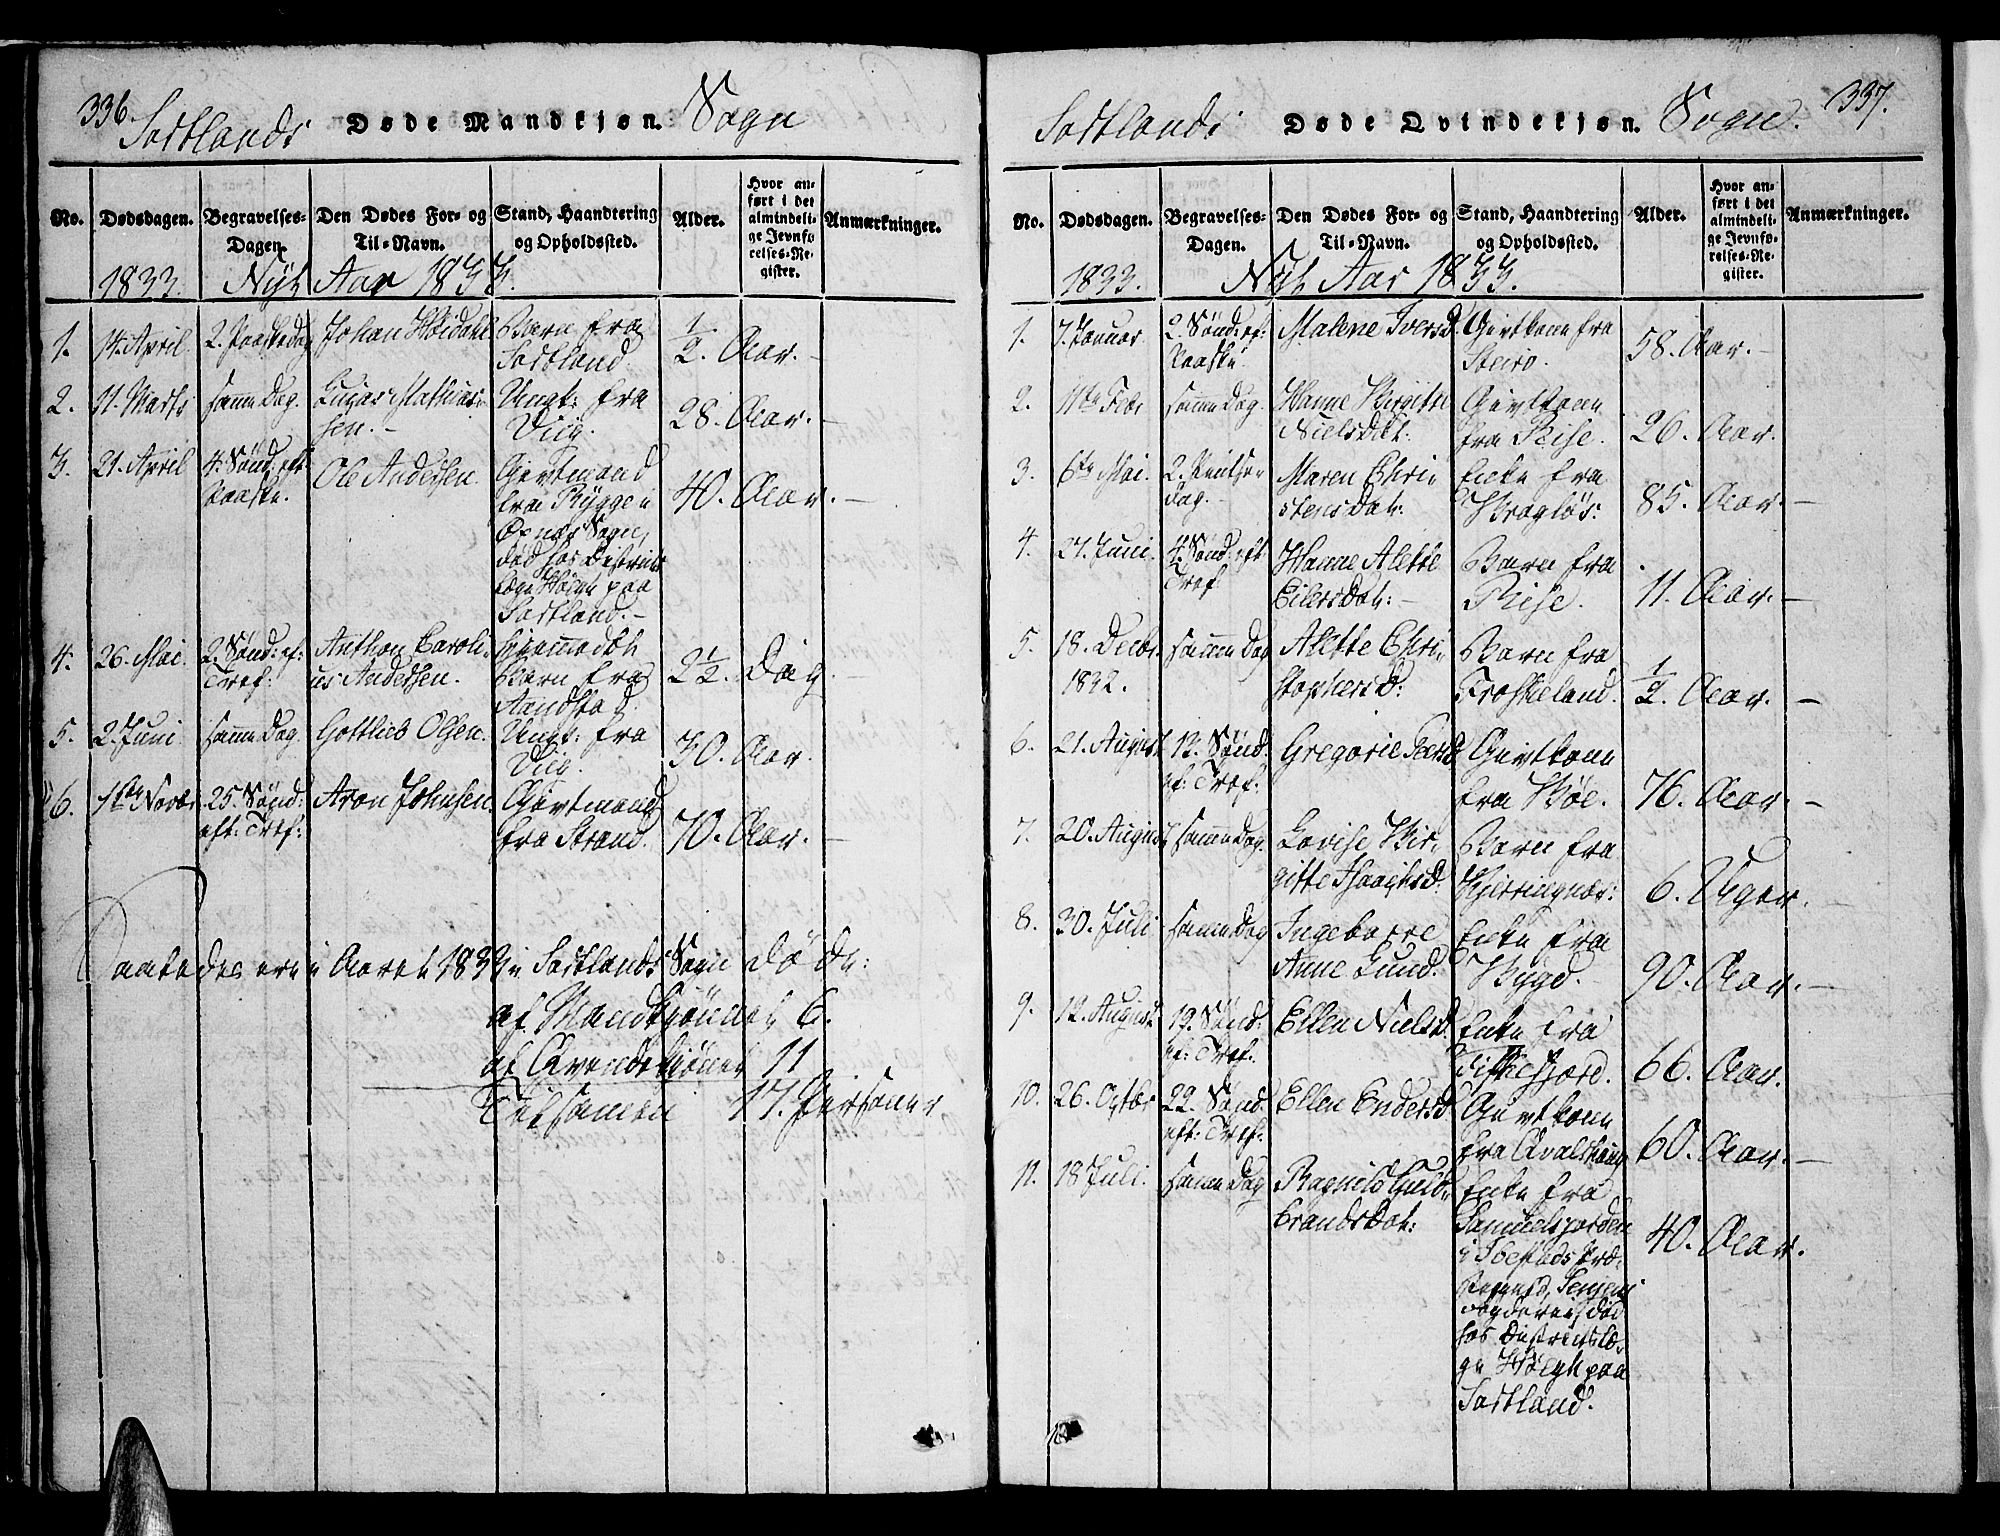 336.
Sortlands Døde Mandkjøn. Sogn
No. Dødsdagen. Begravelses-Dagen. Den Dødes For- og Til-Navn. Stand, Haandtering og Opholdssted. Alder. Hvor anført i det almindelige Jevnførelses-Register. Anmærkninger.
1833. Nyt Aar 1833.
1. 14. April 2. Paaskedag Johan Høidahl Barn fra
Sortland. 1/2. Aar. –
2. 11. Marts samme Dag. Lucas Mathias-
sen. – Ungk: fra
Viig. 28. Aar. –
3. 21. April 4. Sønd: eft:
Paaske. Ole Andersen. Giftmand
fra Rygge i
Øxnæs Sogn,
død hos Districts
læge Høegh paa
Sortland. – 40. Aar. –
4. 26. Mai. 2. Sønd: ef:
Tref: Anthon Caroli-
us Andersen. hjemmedøbt
Barn fra
Aandstad. 2 1/2 Dag. –
5. 2. Juni samme Dag. Gottlieb Olsen. Ungk: fra
Viig. 30. Aar.
6. 1ste Novbr 25. Sønd:
eft: Tref: Aron Johnsen. Giftmand
fra Strand. 70. Aar. –
Saaledes ere i Aaret 1833 i Sortlands Sogn døde:
af Mandkjønnet 6.
af Qvindekjønnet 11
Tilsamen 17. Personer
337.
Sortlands Døde Qvindekjøn. Sogn.
No. Dødsdagen. Begravelses-Dagen. Den Dødes For- og Til-Navn. Stand, Haandtering og Opholdssted. Alder. Hvor anført i det almindelige Jevnførelses-Register. Anmærkninger.
1833. Nyt Aar 1833.
1. 7. Januar 2. Sønd: ef:
Paaske Malene Iversd. Giftkone fra
Steiro. 58. Aar. –
2. 11te Febr samme Dag. Hanne Birgitte
Nielsdat: Giftkone
fra Rise. 26. Aar.
3. 6te Mai. 2. Pintse
dag. – Maren Chri-
stensdat: Enke fra
Bragløs: 85. Aar. –
4. 27. Juni. 4. Sønd: eft:
Tref Hanne Alette
Eilersdat: – Barn fra
Rise. 11. Aar. –
5. 18. Decbr.
1832. samme Dag Alette Chri-
stophersd: Barn fra
Froskeland. 1/2. Aar. –
6. 21. August 12. Sønd.
ef: Tref: Gregorie Peersd Giftkone
fra Bøe. 76. Aar. –
7. 20. August samme Dag. Lovise Bir-
gitte Haagensd: Barn fra
Kjerringnæs: 6. Uger. –
8. 30. Juli samme Dag Ingeborre
Anne Lund. Enke fra
Bygd. – 90. Aar. –
9. 12. August 19. Sønd:
ef: Tref: Ellen Nielsd: Enke fra
Fiskefjord. 66. Aar.
10. 26. Octbr 22. Sønd.
eft: Tref: Ellen Endersd. Giftkone
fra Qvalshaug 60. Aar. –
11. 18 Juli. samme Dag Ragnild Guld-
brandsdat: Enke fra
Samuelsjorden
i Ibestads Præ-
stegield, Senjens
Fogderie, død
hos Districtslæ-
ge Høegh paa
Sortland. 40. Aar.